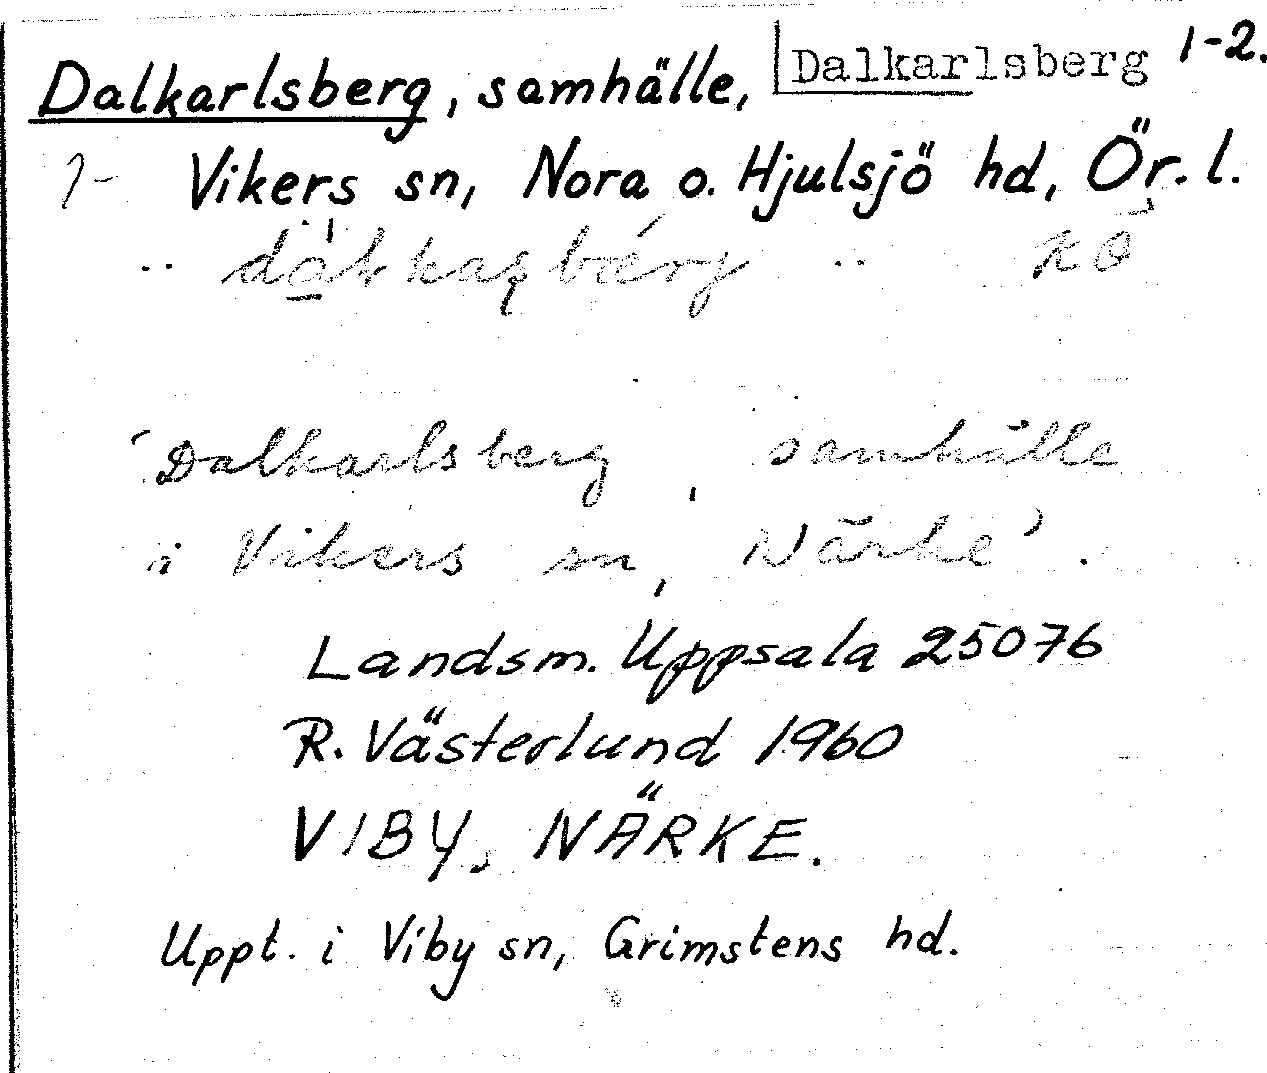 Dalkarlsberg, samhälle, Dalkarlsberg 1-2.
Vikers sn, Nora o. Hjulsjö hd, Ör. l.
Dalkarlsberg, samhälle
i Vikers sn, Närke'.
Landsm. Uppsala 25076
R. Västerlund 1960
VIBY, NÄRKE.
Uppt. i Viby sn, Grimstens hd.